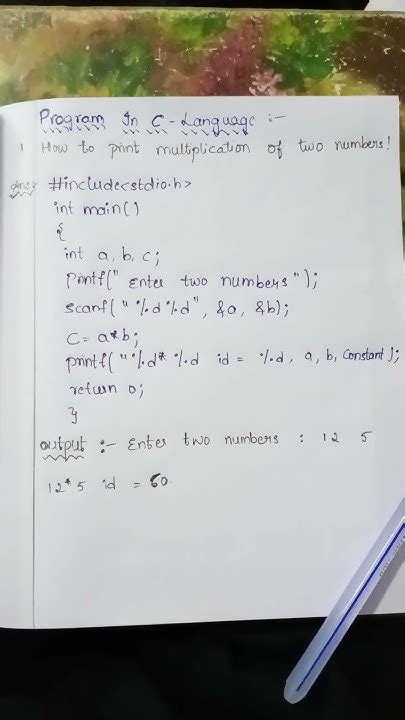 Program In C - Language :-
1 How to print multiplication of two numbers!
Ans: #include<stdio.h>
int main()
{
int a, b, c;
Printf(" Enter two numbers");
Scanf( "%d %d", &a, &b);
C = a*b;
printf( "%d* %d id = %d, a, b, Constant );
return 0;
}
output :- Enter two numbers : 12 5
12*5 id = 60.